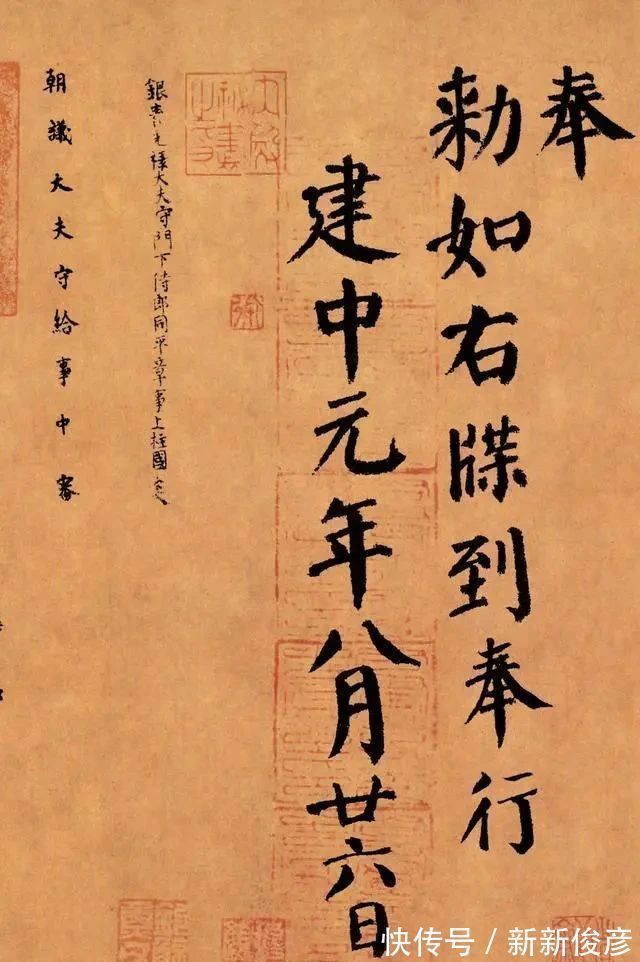 奉
勑如右牒到奉行
建中元年八月廿六日
銀青光祿大夫守門下侍郎同平章事上柱國炎
朝議大夫守給事中審
快传号 / 新新俊彦